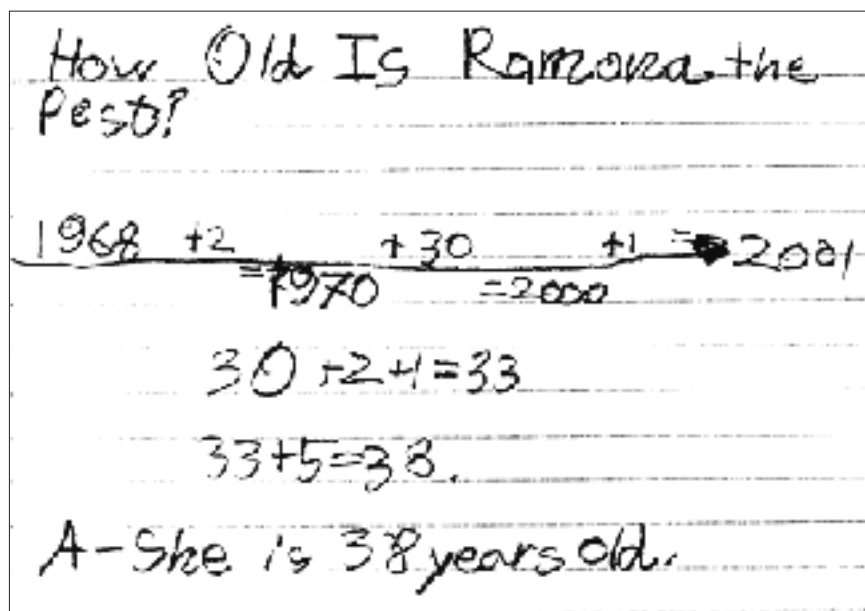 How Old Is Ramona the
Pest?
1968 +2 +30 +1 = 2001
=1970 =2000
30+2+1=33
33+5=38.
A-She is 38 years old.